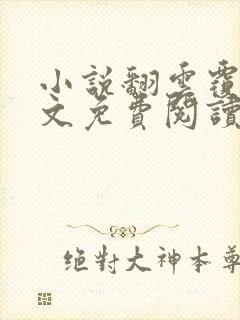 小說翻雲覆
文免費閱讀
絕對大神本尊